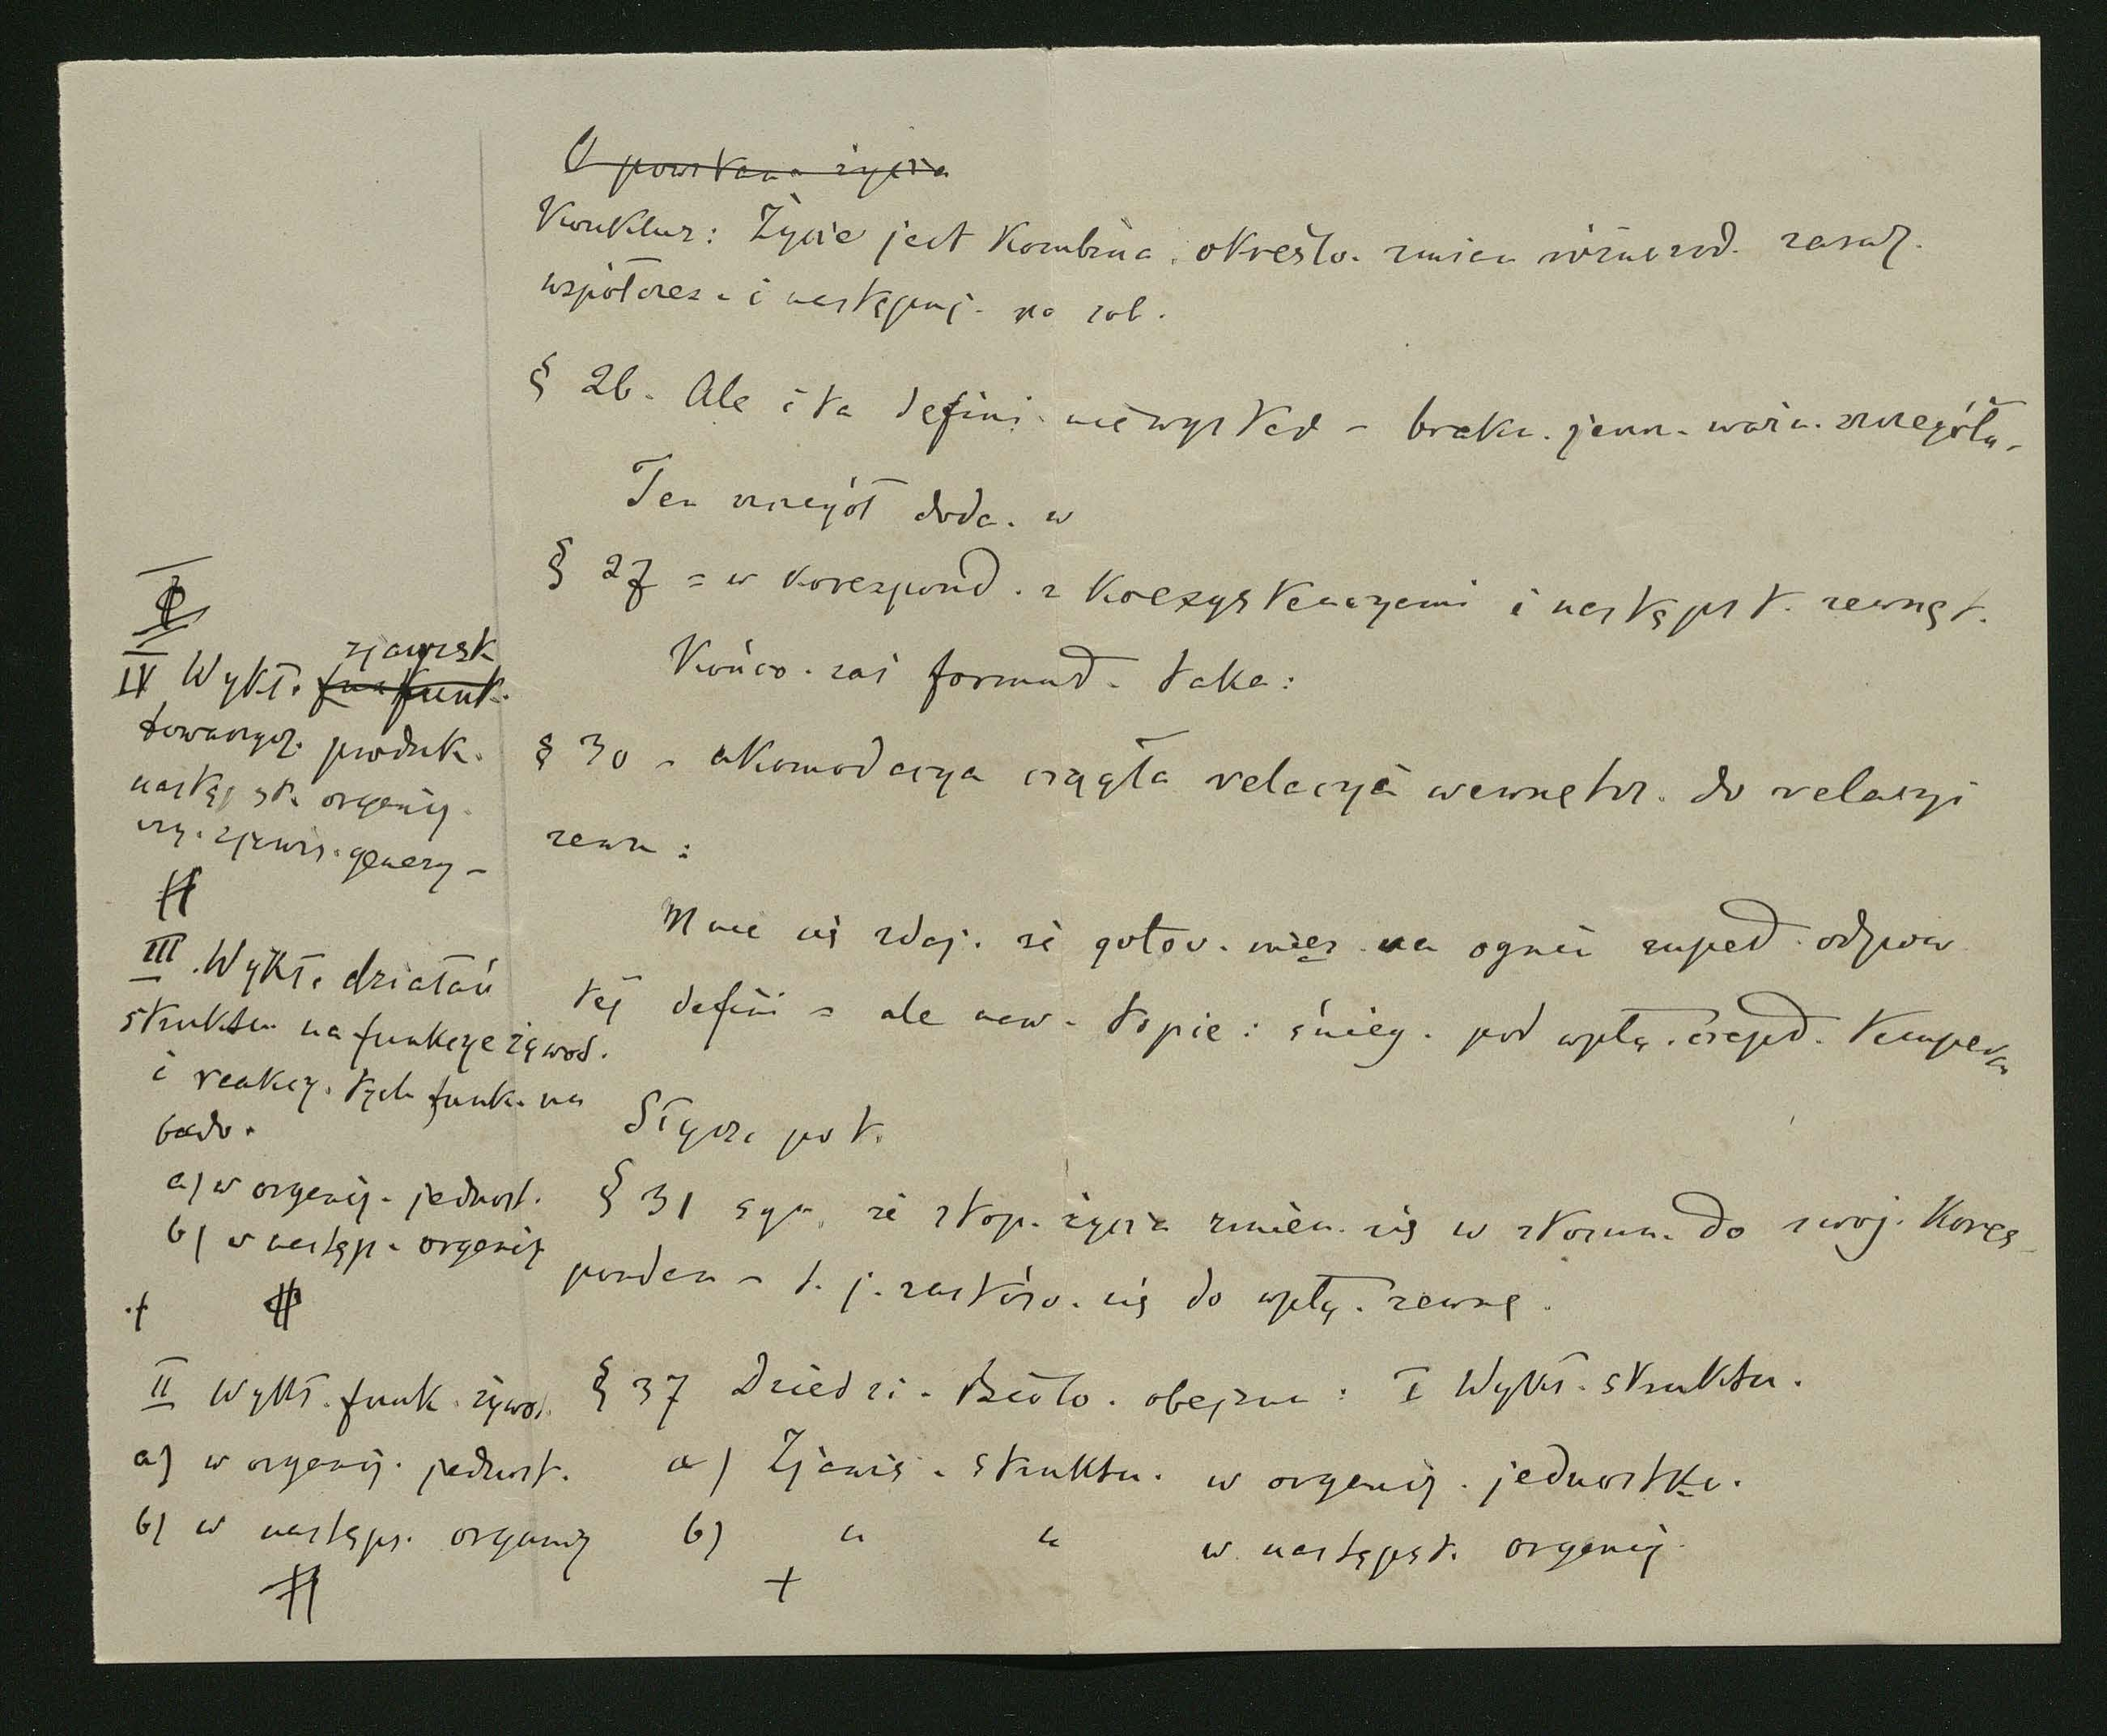 O powstan. życia
Konkluz: Życie jest kombina. określo. zmian różnorod. zaraz.
współczes. i następuj. po sob.
§ 26. Ale i ta defini. niewystar - braku. jeszcz. ważn. szczegółu.
Ten szczegół doda. w
§ 27 = w korespond. z koegzystencyami i następst. zewnęt.
Końco. zaś formuł. taka:
§ 30 - akomodacya ciągła relacyi wewnętrz. do relacyi
zewn:
Mnie się zdaj. że gotow. na ogniu zupeł. odpow
tej defini = ale naw. topie: śnieg. pod wpły. ciepł. temper
Słysz. pot.
§ 31 że stop. życia zmien. się w stosun. do swoj. kores
ponden - t. j. zastóso. się do wpły. zewnę.
§ 37 Dziedzi. Biolo. obejm: I Wykł. struktu.
a) Zjawis. struktu. w organiz. jednostko.
b) " " w następst. organiz.
+
IV Wykł. funk.
zjawisk
towarzysz. produk.
następst. organiz.
czy. zjawis. genezy -
III. Wykł. działań
struktur na funkcye żywot.
i reakcy. tych funk. na
budo.
a) w organiz. jednost.
b) w następ. organiz
II Wykł. funk. żywot.
a) w organiz. jednost.
b) w następs. organiz